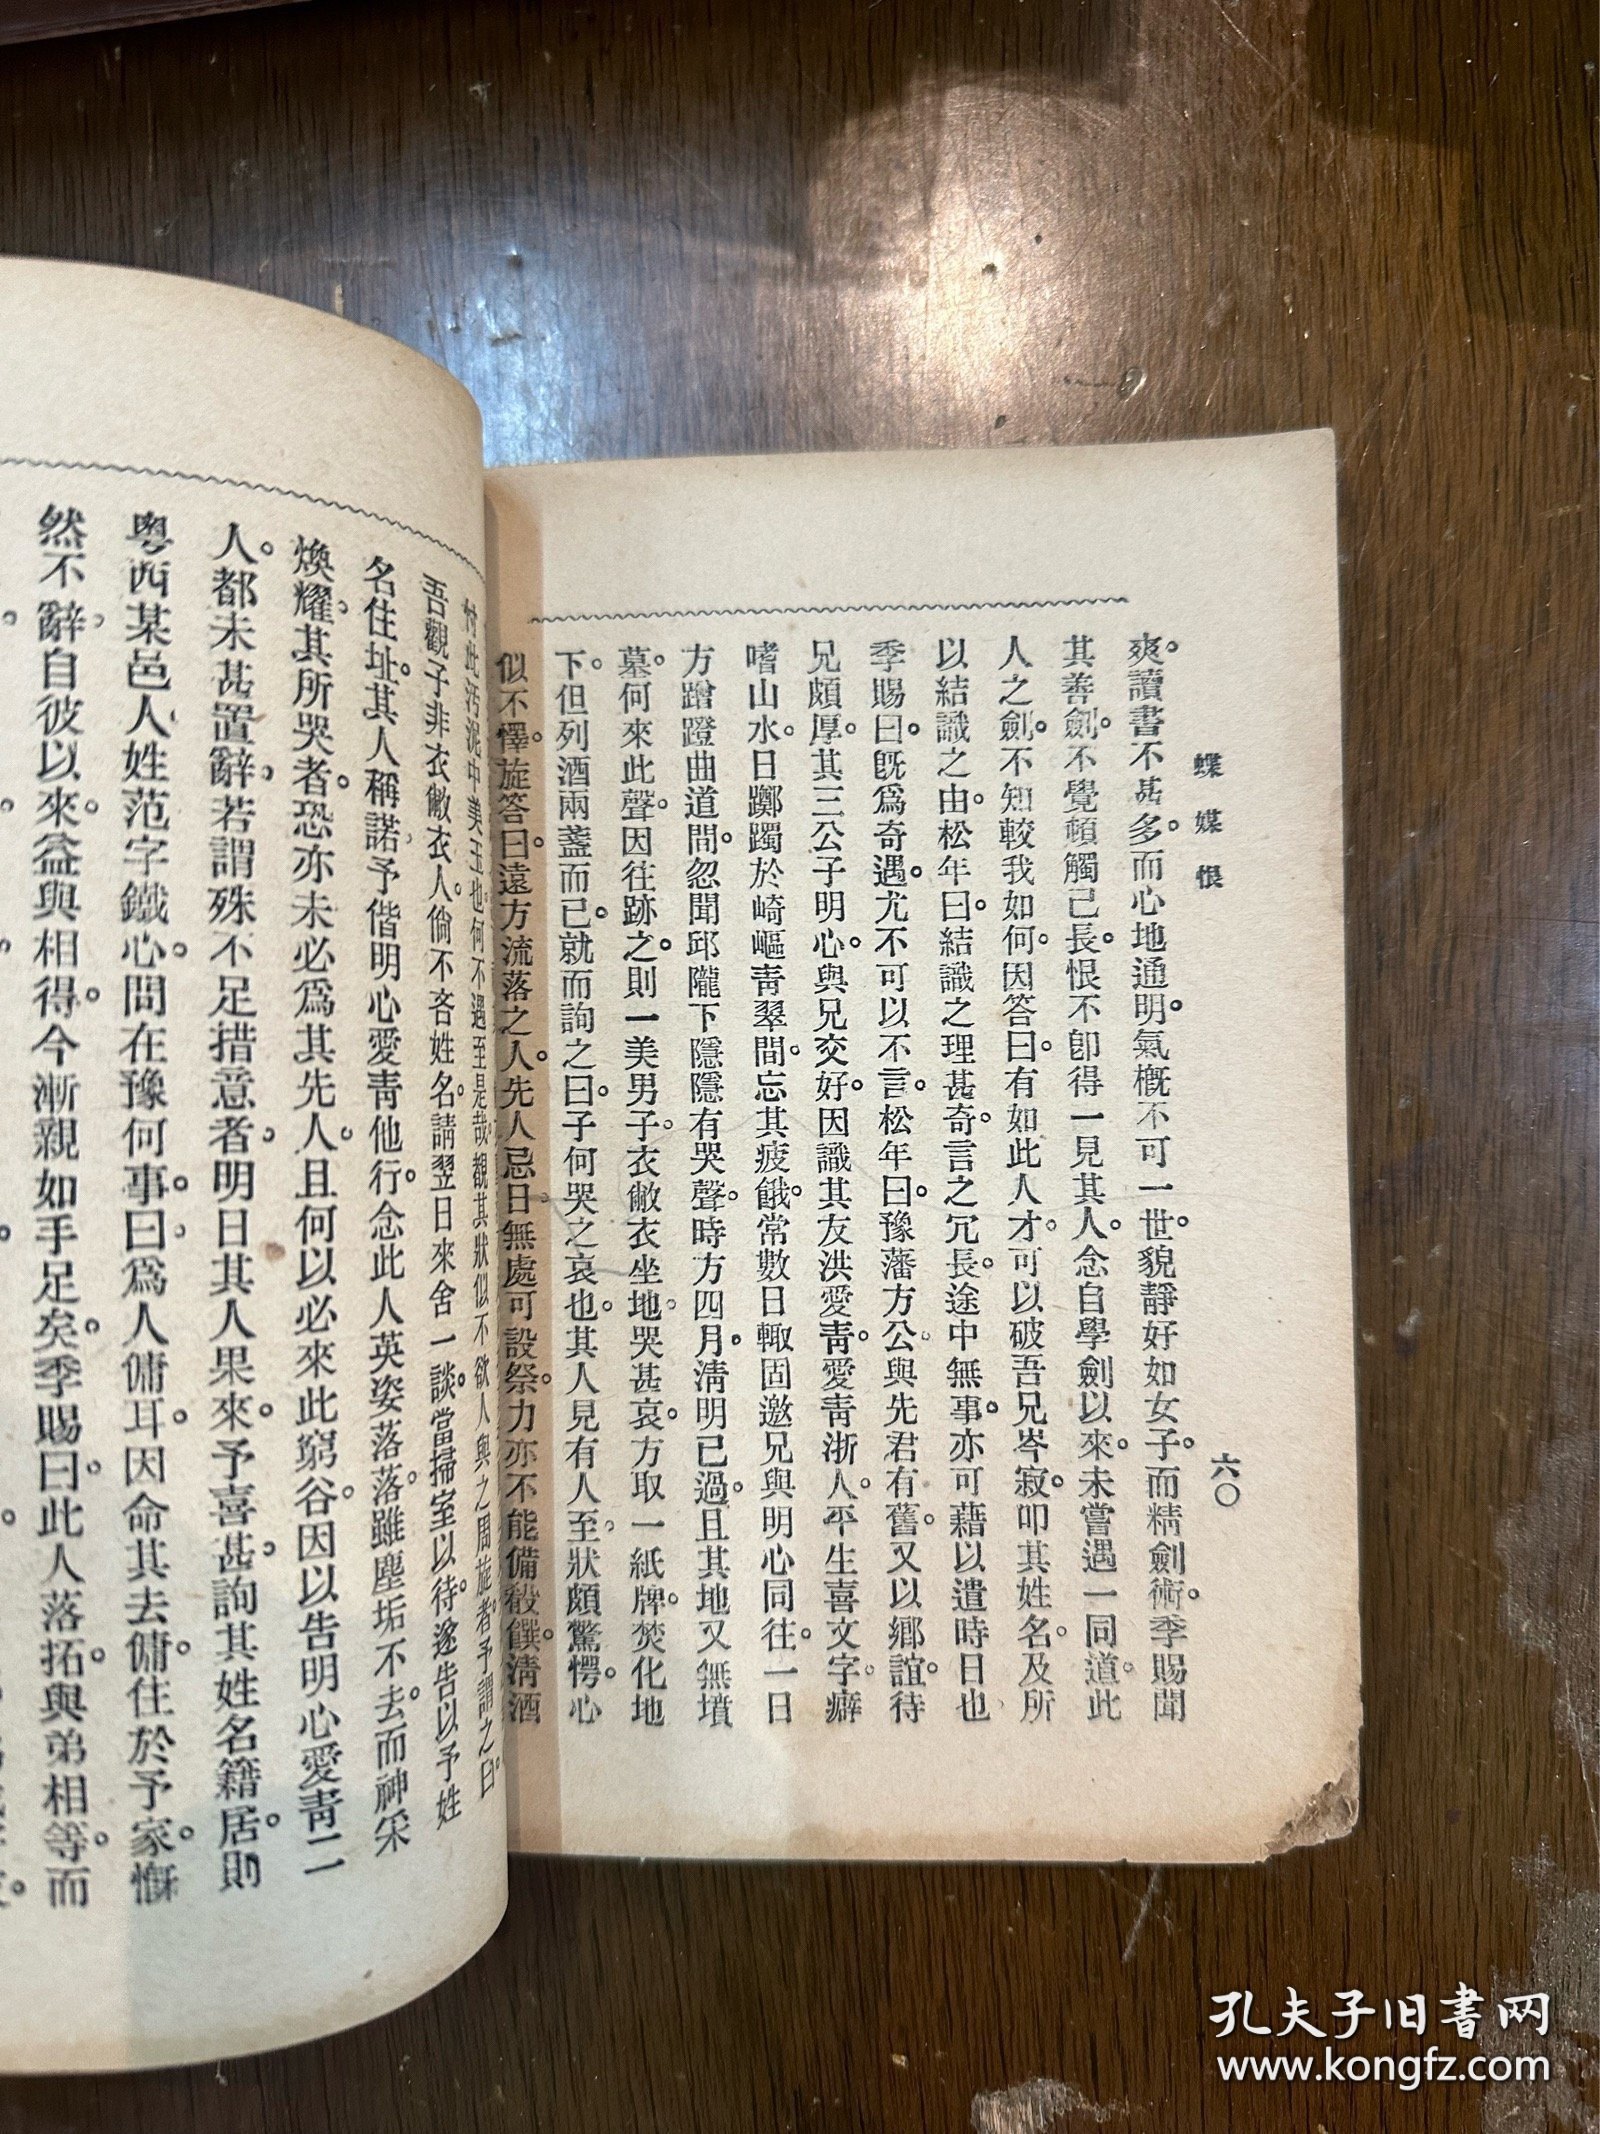 蝶媒恨
六〇
爽。讀書不甚多。而心地通明。氣槪不可一世。貌靜好如女子。而精劍術。季賜聞
其善劍。不覺頓觸己長。恨不卽得一見其人。念自學劍以來。未嘗遇一同道。此
人之劍。不知較我如何。因答曰。有如此人才。可以破吾兄岑寂。叩其姓名。及所
以結識之由。松年曰。結識之理甚奇。言之冗長。途中無事。亦可藉以遣時日也
季賜曰。旣爲奇遇。尤不可以不言。松年曰。豫藩方公。與先君有舊。又以鄕誼。待
兄頗厚。其三公子明心。與兄交好。因識其友洪愛靑。愛靑浙人。平生喜文字。癖
嗜山水。日躑躅於崎嶇靑翠間。忘其疲餓。常數日輙固邀兄與明心同往。一日
方蹭蹬曲道間。忽聞邱隴下隱隱有哭聲。時方四月。淸明已過。且其地又無墳
墓。何來此聲。因往跡之。則一美男子。衣敝衣坐地。哭甚哀。方取一紙牌。焚化地
下。但列酒兩盞而已。就而詢之曰。子何哭之哀也。其人見有人至。狀頗驚愕。心
似不懌。旋答曰。遠方流落之人。先人忌日。無處可設祭。力亦不能備殽饌。淸酒
此汚泥中美玉也。何不遇至是哉。覩其狀似不欲人與之周旋者。予謂之曰。
吾觀子非衣敝衣人。倘不吝姓名。請翌日來舍一談。當掃室以待。遂告以予姓
名住址。其人稱諾。予偕明心愛靑他行。念此人英姿落落。雖塵垢不去。而神采
煥耀。其所哭者。恐亦未必爲其先人。且何以必來此窮谷。因以告明心愛靑二
人。都未甚置辭。若謂殊不足措意者。明日其人果來。予喜甚。詢其姓名籍居。則
粤西某邑人。姓范字鐵心。問在豫何事。曰。爲人傭耳。因命其去傭。住於予家。慨
然不辭。自彼以來。益與相得。今漸親如手足矣。季賜曰。此人落拓。與弟相等。而
孔夫子旧書网
www.kongfz.com